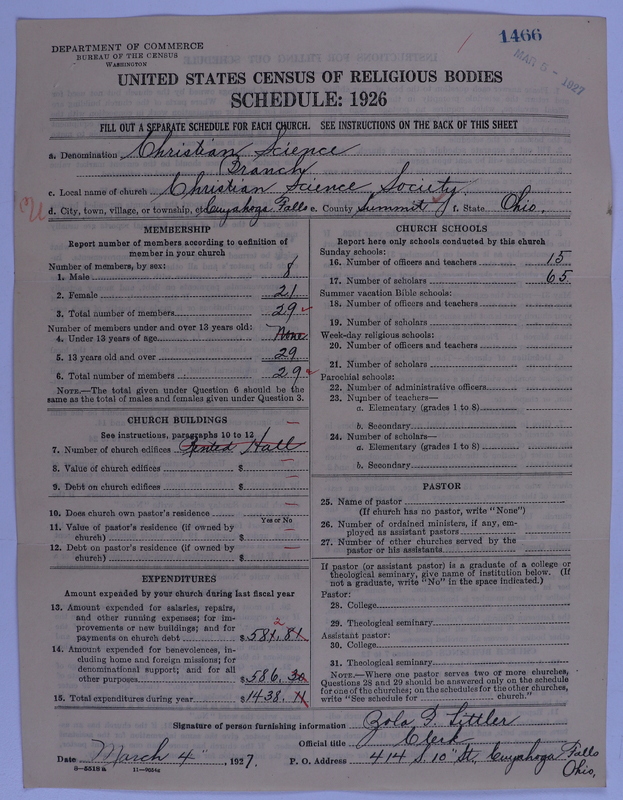 1466
MAR 5 - 1927
DEPARTMENT OF COMMERCE
BUREAU OF THE CENSUS
WASHINGTON
UNITED STATES CENSUS OF RELIGIOUS BODIES
SCHEDULE: 1926
FILL OUT A SEPARATE SCHEDULE FOR EACH CHURCH. SEE INSTRUCTIONS ON THE BACK OF THIS SHEET
a. Denomination Christian Science
Branch
c. Local name of church Christian Science Society.
d. City, town, village, or township, etc Cuyahoga Falls e. County Summit f. State Ohio.
MEMBERSHIP
Report number of members according to definition of
member in your church
Number of members, by sex:
1. Male 8
2. Female 21
3. Total number of members 29
Number of members under and over 13 years old:
4. Under 13 years of age None
5. 13 years old and over 29
6. Total number of members 29
NOTE.—The total given under Question 6 should be the
same as the total of males and females given under Question 3.
CHURCH BUILDINGS
See instructions, paragraphs 10 to 12
7. Number of church edifices Rented Hall
8. Value of church edifices $
9. Debt on church edifices $
10. Does church own pastor's residence
Yes or No
11. Value of pastor's residence (if owned by
church) $
12. Debt on pastor's residence (if owned by
church) $
EXPENDITURES
Amount expended by your church during last fiscal year
13. Amount expended for salaries, repairs,
and other running expenses; for im-
provements or new buildings; and for
payments on church debt $ 581.81
2
14. Amount expended for benevolences, in-
cluding home and foreign missions; for
denominational support; and for all
other purposes $ 586.30
15. Total expenditures during year $ 1438.11
CHURCH SCHOOLS
Report here only schools conducted by this church
Sunday schools:
16. Number of officers and teachers 15
17. Number of scholars 65
Summer vacation Bible schools:
18. Number of officers and teachers
19. Number of scholars
Week-day religious schools:
20. Number of officers and teachers
21. Number of scholars
Parochial schools:
22. Number of administrative officers
23. Number of teachers—
a. Elementary (grades 1 to 8)
b. Secondary
24. Number of scholars—
a. Elementary (grades 1 to 8)
b. Secondary
PASTOR
25. Name of pastor
(If church has no pastor, write "None")
26. Number of ordained ministers, if any, em-
ployed as assistant pastors
27. Number of other churches served by the
pastor or his assistants
If pastor (or assistant pastor) is a graduate of a college or
theological seminary, give name of institution below. (If
not a graduate, write "No" in the space indicated.)
Pastor:
28. College
29. Theological seminary
Assistant pastor:
30. College
31. Theological seminary
NOTE.—Where one pastor serves two or more churches,
Questions 28 and 29 should be answered only on the schedule
for one of the churches; on the schedules for the other churches,
write "See schedule for church."
Signature of person furnishing information Zola F. Littler
Official title Clerk
Date March 4", 1927. P. O. Address 414 S. 10" St. Cuyahoga Falls
Ohio.
8—5518a 11—9024a